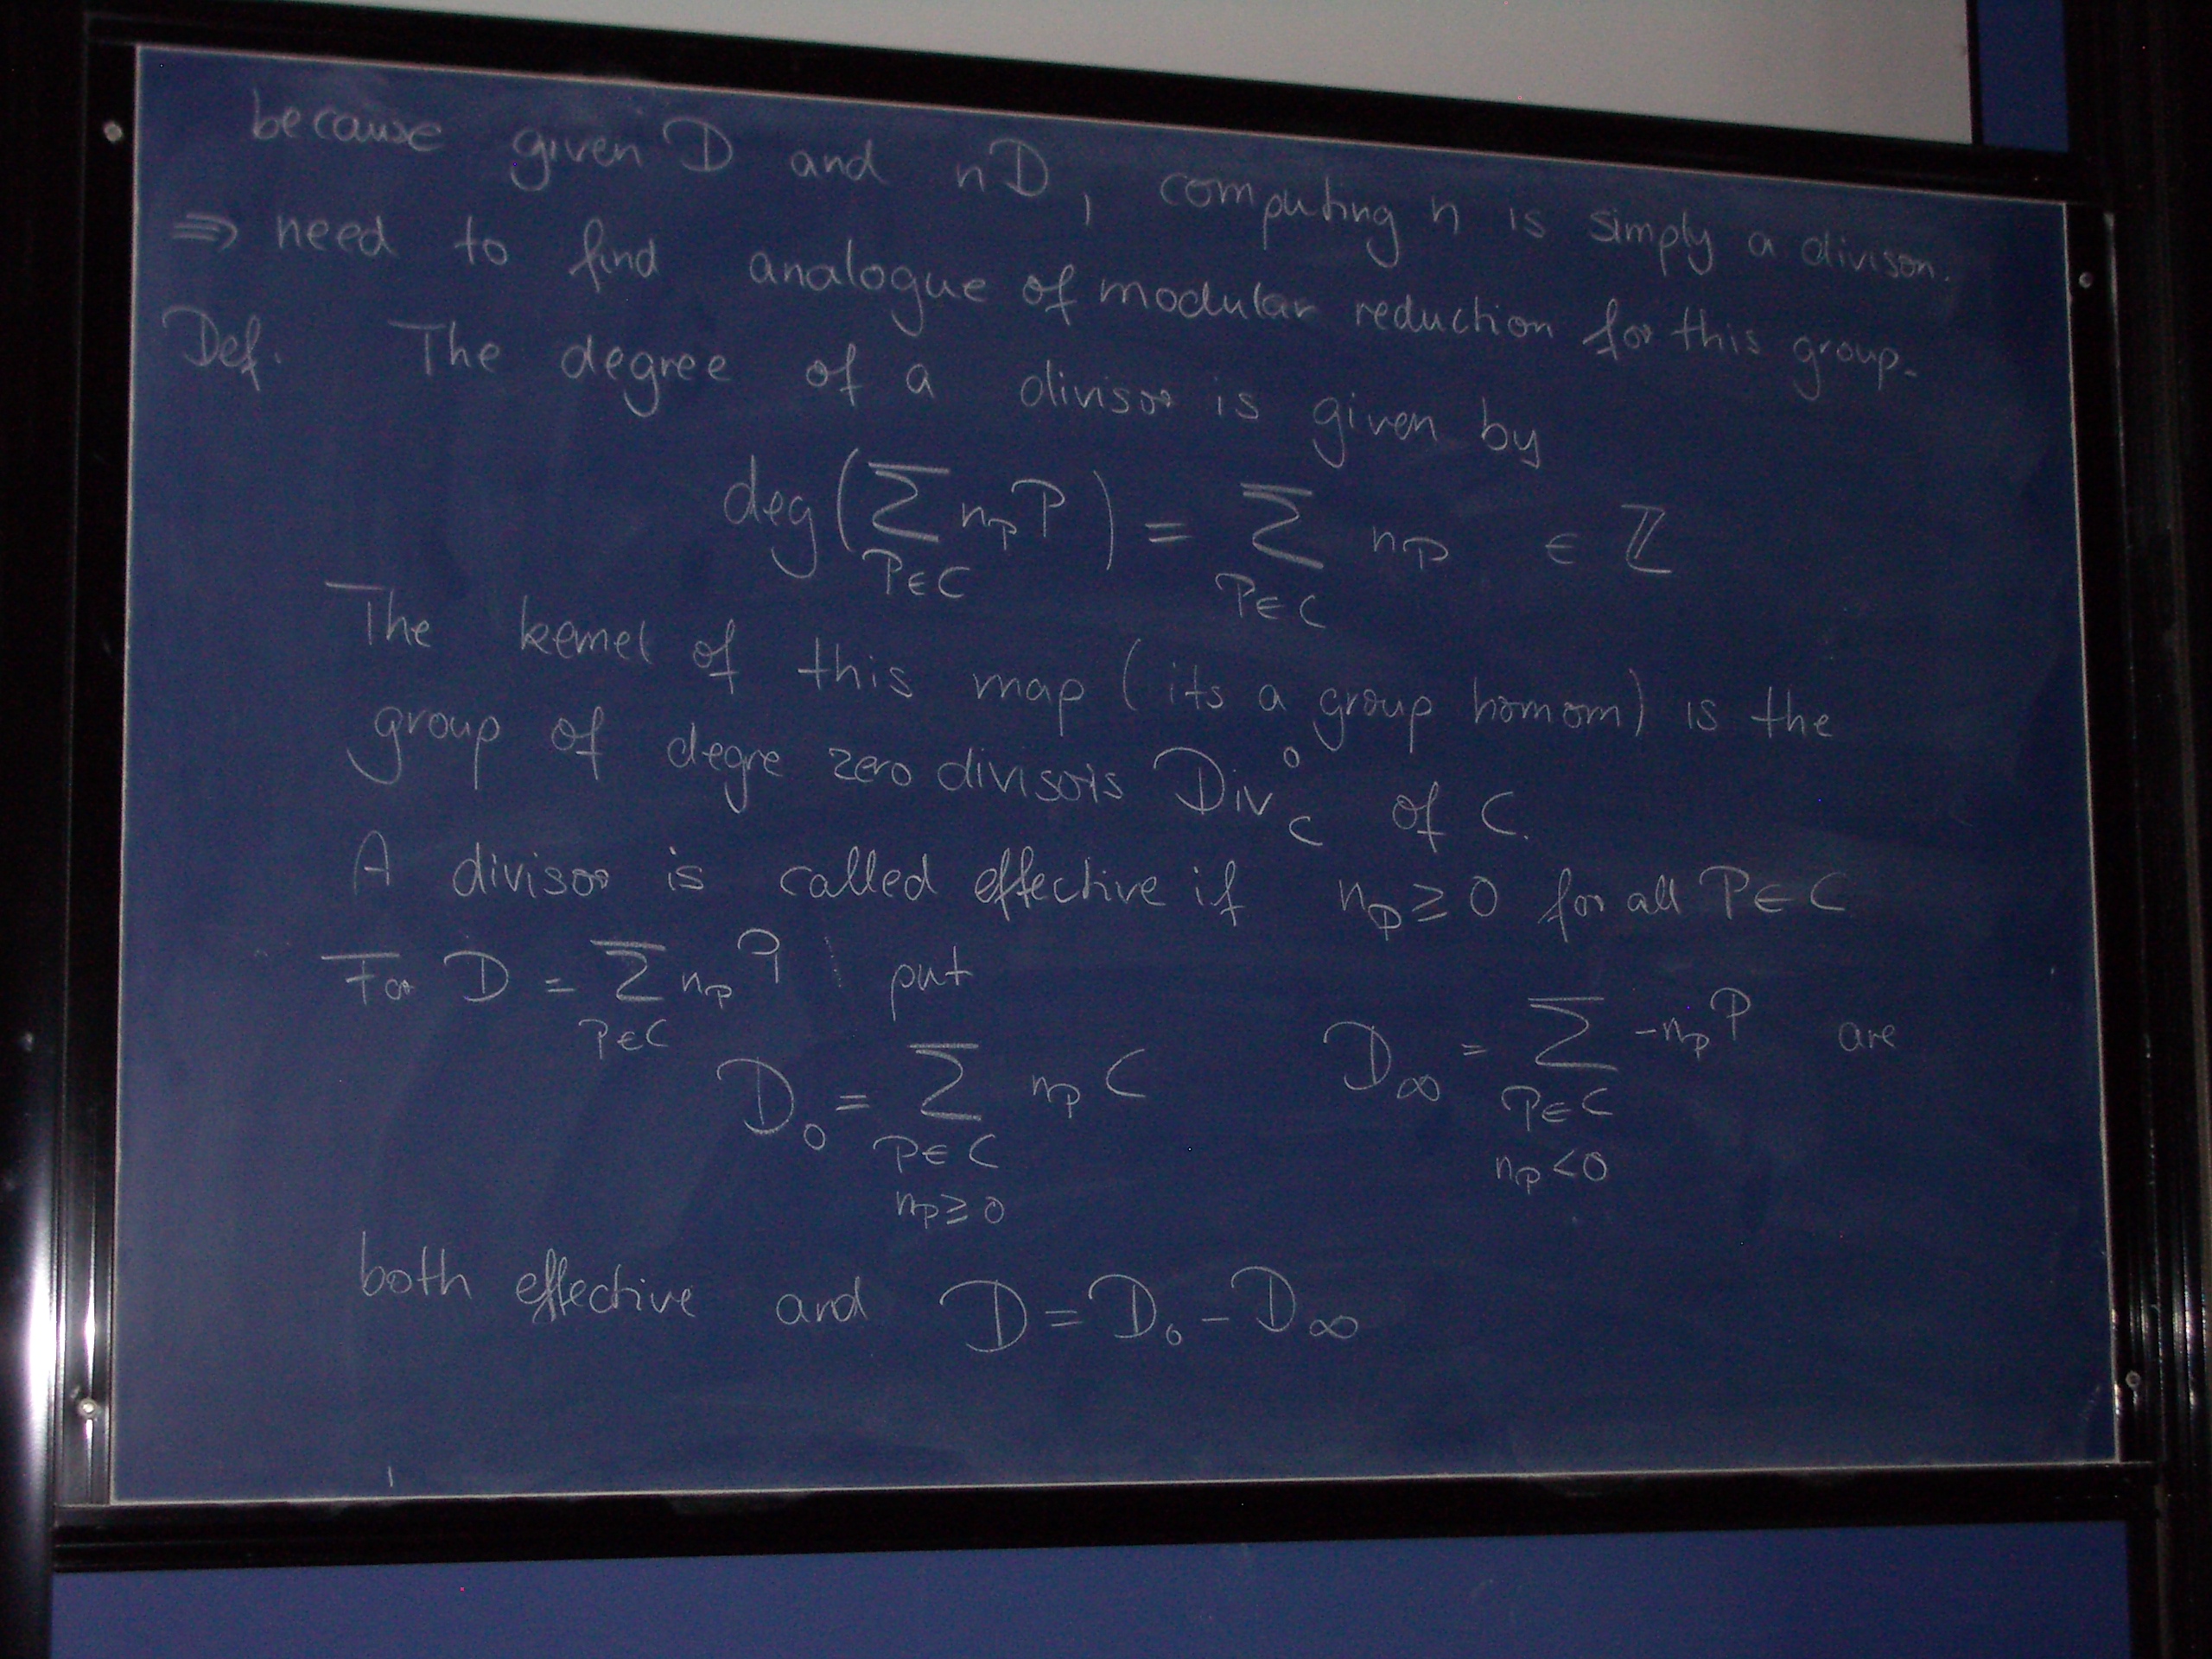 because given D and nD, computing n is simply a divison.
⇒ need to find analogue of modular reduction for this group.
Def. The degree of a divisor is given by
deg(∑_{P∈C} n_P P) = ∑_{P∈C} n_P ∈ ℤ
The kernel of this map (its a group homom) is the
group of degre zero divisors Div_C^0 of C.
A divisor is called effective if n_P ≥ 0 for all P∈C
For D = ∑_{P∈C} n_P P put
D_0 = ∑_{P∈C, n_P≥0} n_P C D_∞ = ∑_{P∈C, n_P<0} -n_P P are
both effective and D = D_0 - D_∞